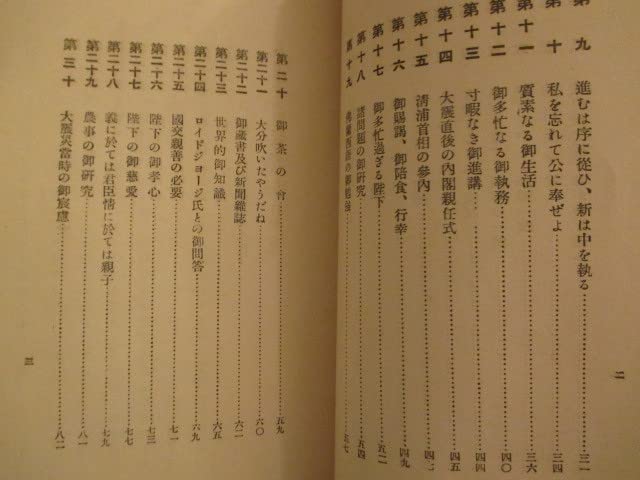 第九 進むは序に從ひ、新は中を執る…三一
第十 私を忘れて公に奉ぜよ…三四
第十一 質素なる御生活…三六
第十二 御多忙なる御執務…四〇
第十三 寸暇なき御進講…四四
第十四 大震直後の內閣親任式…四五
第十五 淸浦首相の參內…四二
第十六 御賜謁、御陪食、行幸…四九
第十七 御多忙過ぎる陛下…五二
第十八 諸問題の御硏究…五四
第十九 …五七
二
第二十 御茶の會…五九
第二十一 大分吹いたやうだね…六〇
第二十二 御讀書及び新聞雜誌…六二
第二十三 世界的御知識…六五
第二十四 ロイドジョージ氏との御問答…六九
第二十五 國交親善の必要…七一
第二十六 陛下の御孝心…七三
第二十七 陛下の御慈愛…七七
第二十八 義に於ては君臣情に於ては親子…七九
第二十九 農事の御硏究…八一
第三十 大震災當時の御宸慮…八二
三